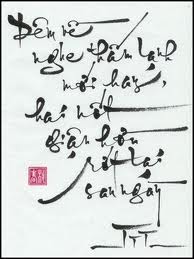 Đêm về
nghe thấm lạnh
mới hay,
hai nốt
giận hờn
rớt lại
san ngáy
TTT